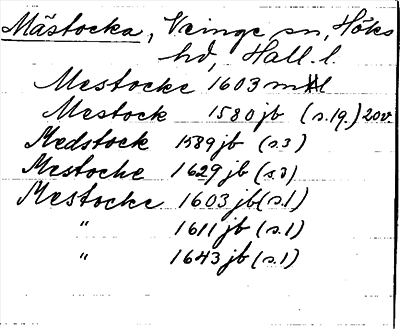 Mästocka, Veinge sn, Höks
hd, Hall. l.
Mestocke 1603 mtl
Mestock 1580 jb (s.19.) 20v
Medstock 1589 jb (s.3)
Mestocke 1629 jb (s.3)
Mestocke 1603 jb (s.1)
" 1611 jb (s.1)
" 1643 jb (s.1)